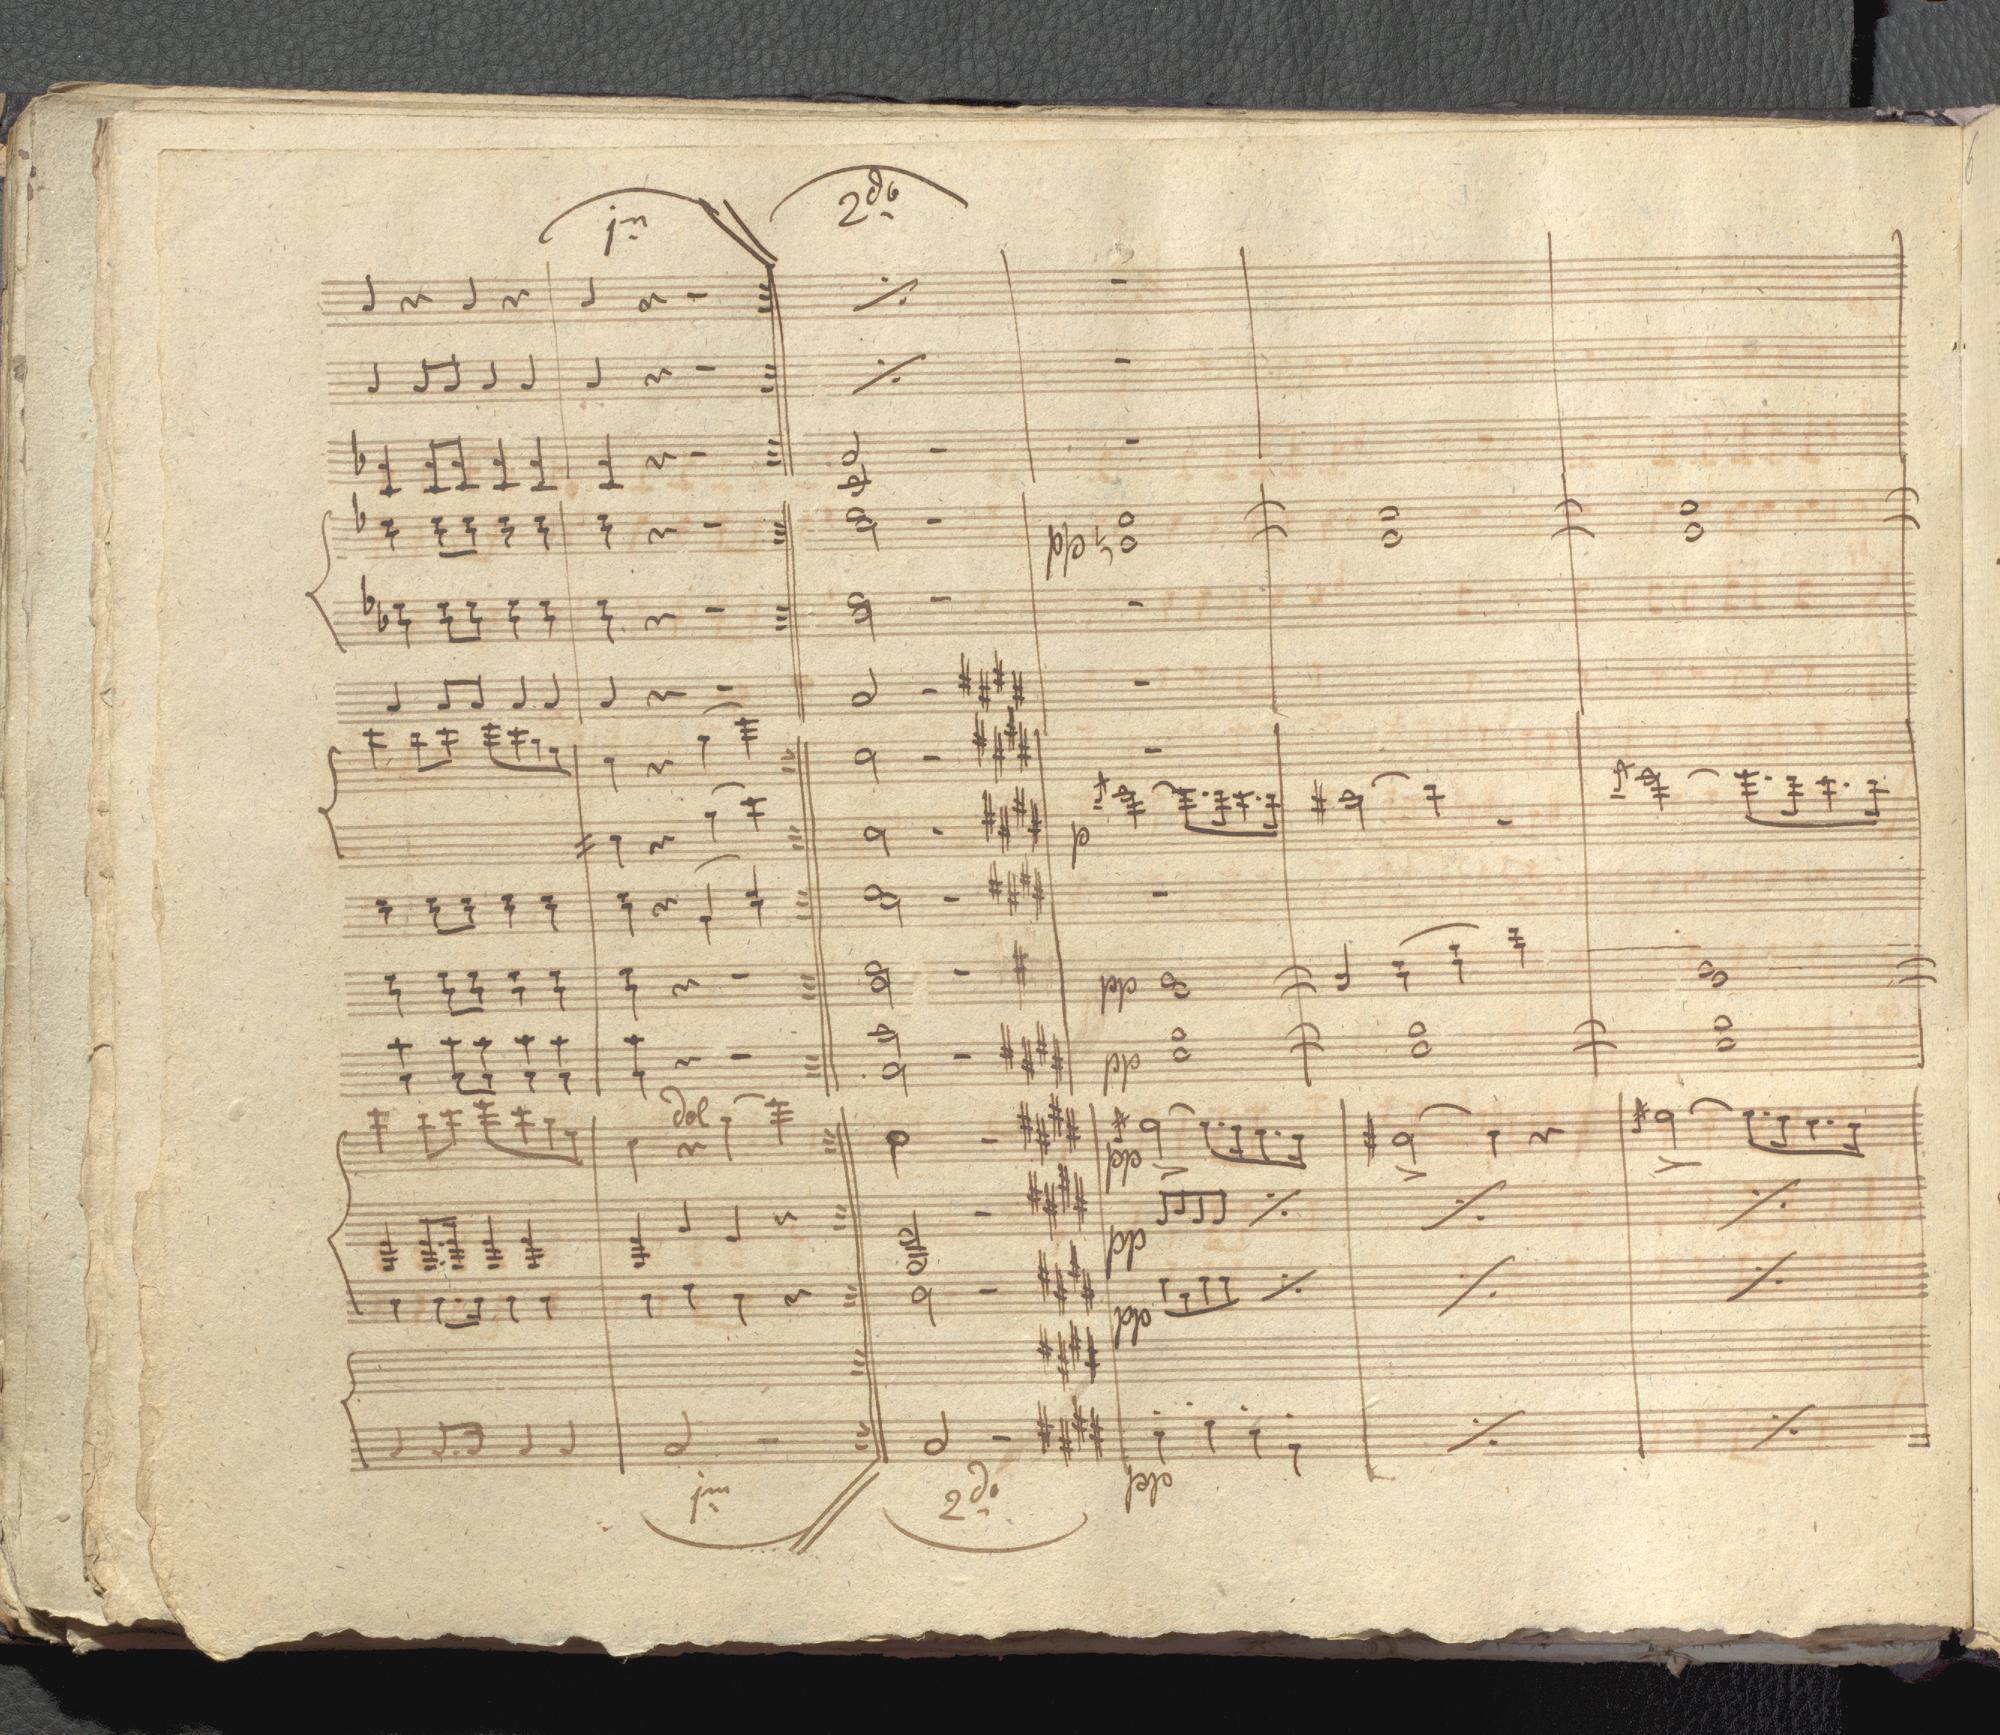 1m 2do
pp
p
pp
pp
dol
pp
pp
pp
pp
1m 2do